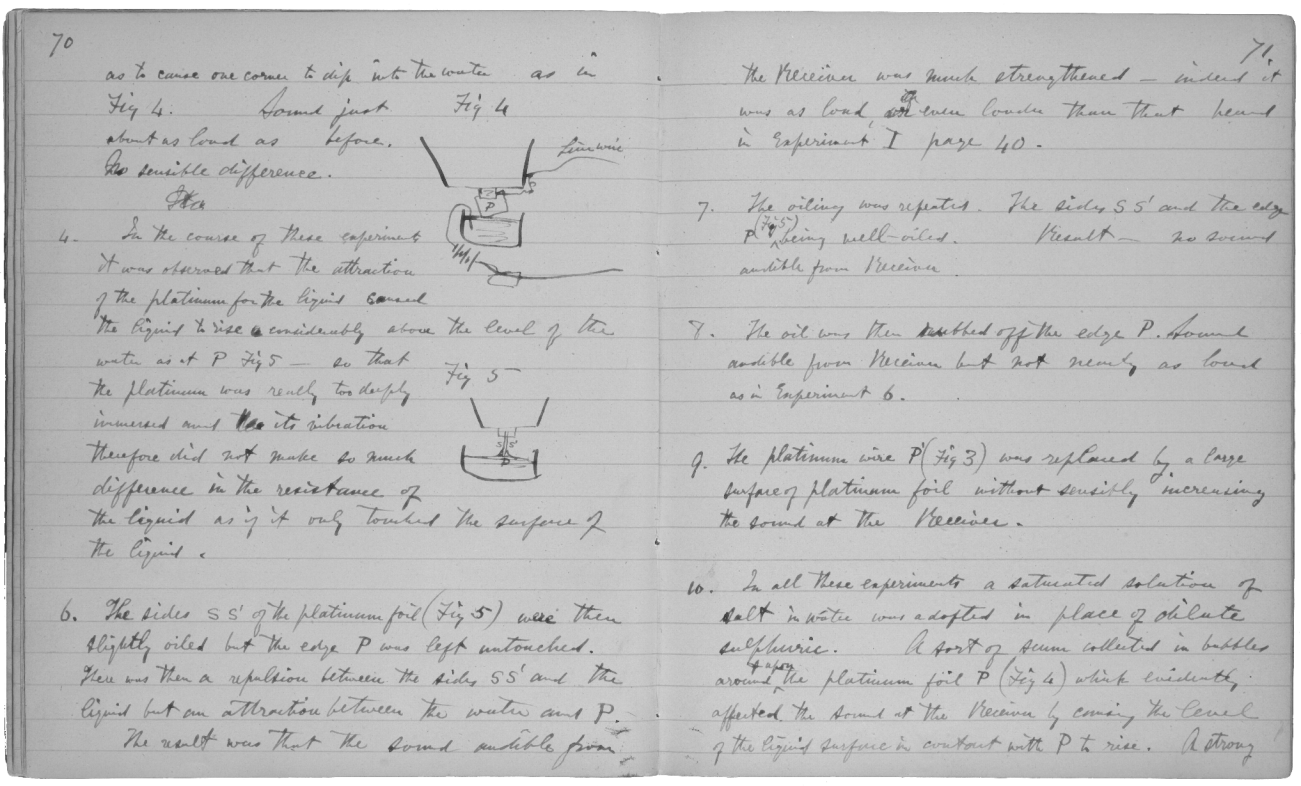 70
as to cause one corner to dip into the water as in
Fig 4. Sound just Fig 4
about as loud as before.
No sensible difference.
Line wire
P
P
4. In the course of these experiments
it was observed that the attraction
of the platinum for the liquid caused
the liquid to rise considerably above the level of the
water as at P Fig 5 — so that
the platinum was really too deeply Fig 5
immersed and its vibration
therefore did not make so much
S S'
P
difference in the resistance of
the liquid as if it only touched the surface of
the liquid.
6. The sides S S' of the platinum foil (Fig 5) were then
slightly oiled but the edge P was left untouched.
There was then a repulsion between the sides SS' and the
liquid but an attraction between the water and P.
The result was that the sound audible from
71
the Receiver was much strengthened — indeed it
was as loud, if even louder than that heard
in Experiment I page 40.
7. The oiling was repeated. The sides S S' and the edge
P (Fig 5) being well-oiled. Result — no sound
audible from Receiver.
8. The oil was then rubbed off the edge P. Sound
audible from Receiver but not nearly as loud
as in Experiment 6.
9. The platinum wire P' (Fig 3) was replaced by a large
surface of platinum foil without sensibly increasing
the sound at the Receiver.
10. In all these experiments a saturated solution of
salt in water was adopted in place of dilute
sulphuric. A sort of scum collected in bubbles
around & upon the platinum foil P (Fig 4) which evidently
affected the sound at the Receiver by causing the level
of the liquid surface in contact with P to rise. A strong